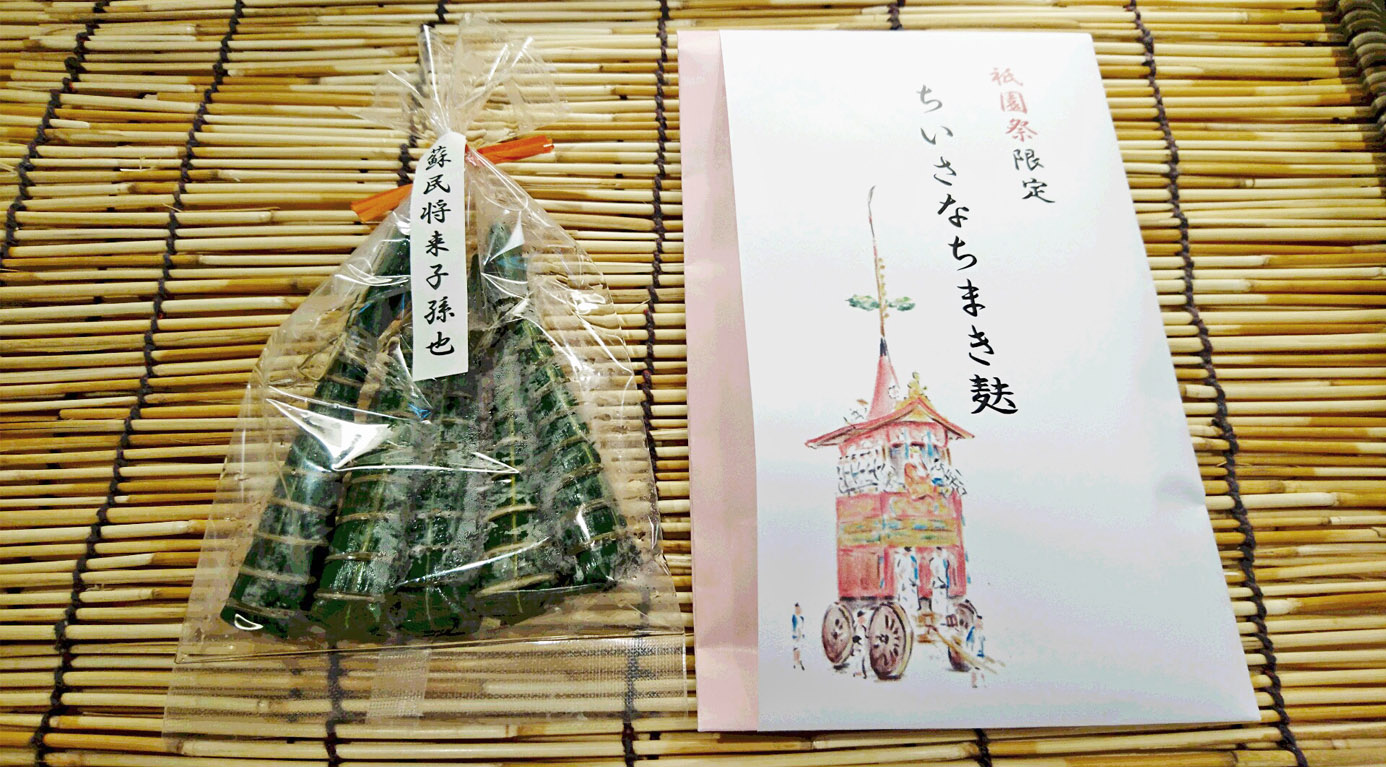 祇園祭限定
ちいさなちまき麩
蘇民将来子孫也